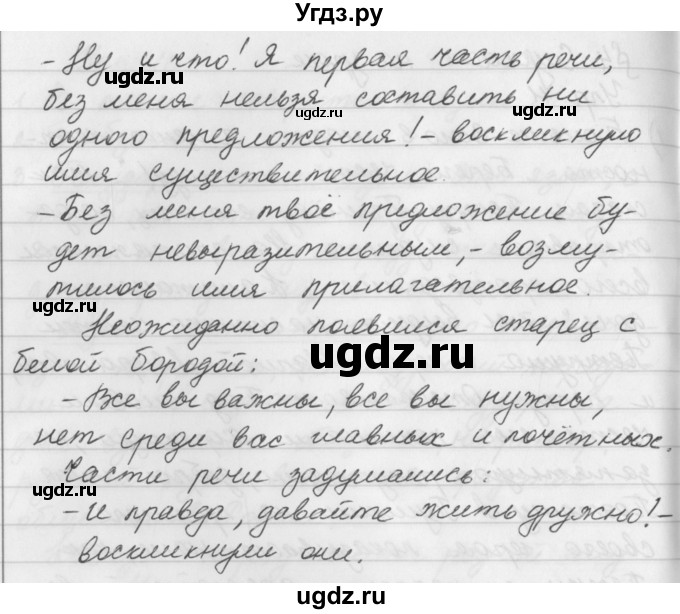 Угдз.ру
- Ну и что! Я первая часть речи,
ugdz.ru
ugdz.ru
без меня нельзя составить ни
одного предложения! - воскликнуло
имя существительное.
- Без меня твоё предложение бу-
дет невыразительным, - возму-
ugdz.ru
тилось имя прилагательное.
Неожиданно появился старец с
ugdz.ru
белой бородой:
- Все вы важны, все вы нужны,
нет среди вас главных и почётных.
Части речи задумались:
ugdz.ru
ugdz.ru
- И правда, давайте жить дружно! -
воскликнули они.